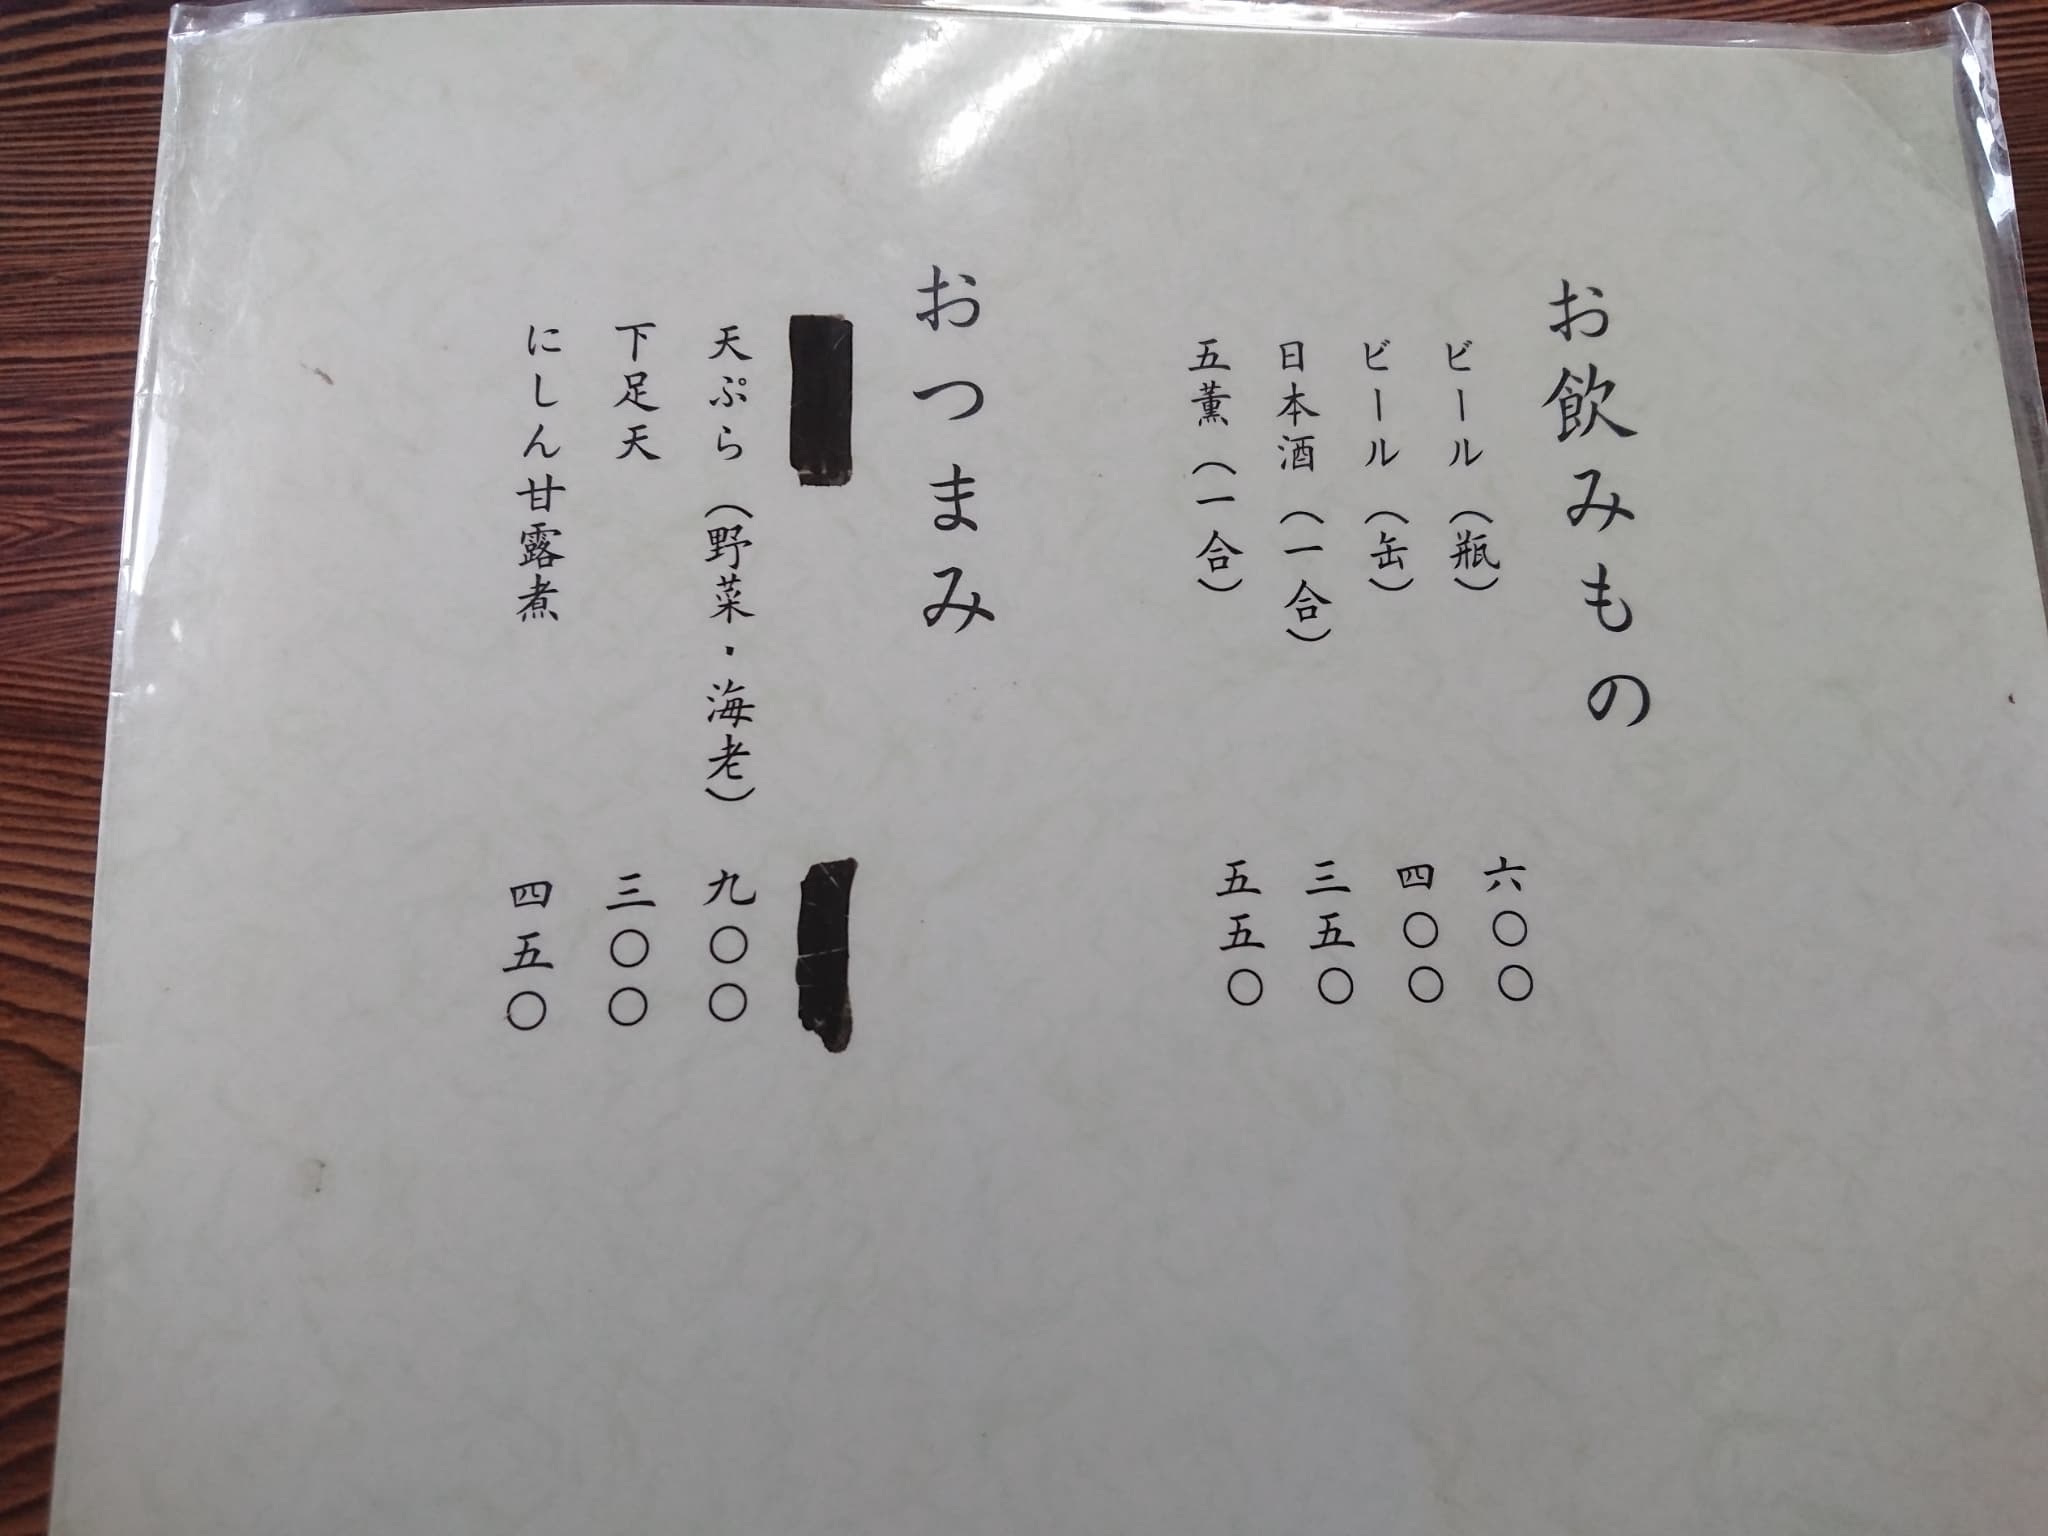 お飲みもの
ビール(瓶) 六〇〇
ビール(缶) 四〇〇
日本酒(一合) 三五〇
五薫(一合) 五五〇
おつまみ
天ぷら(野菜・海老) 九〇〇
下足天 三〇〇
にしん甘露煮 四五〇